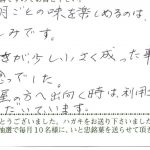 月ごとの味を楽しめるのは、
しみです。
さが少しいさく成った事
でした。
屋の方へ出向く時は、利用
たいています。
とうございました。ハガキをお送り下さいまし
抽選で毎月10名様に、いと忠銘菓を送らせて頂き